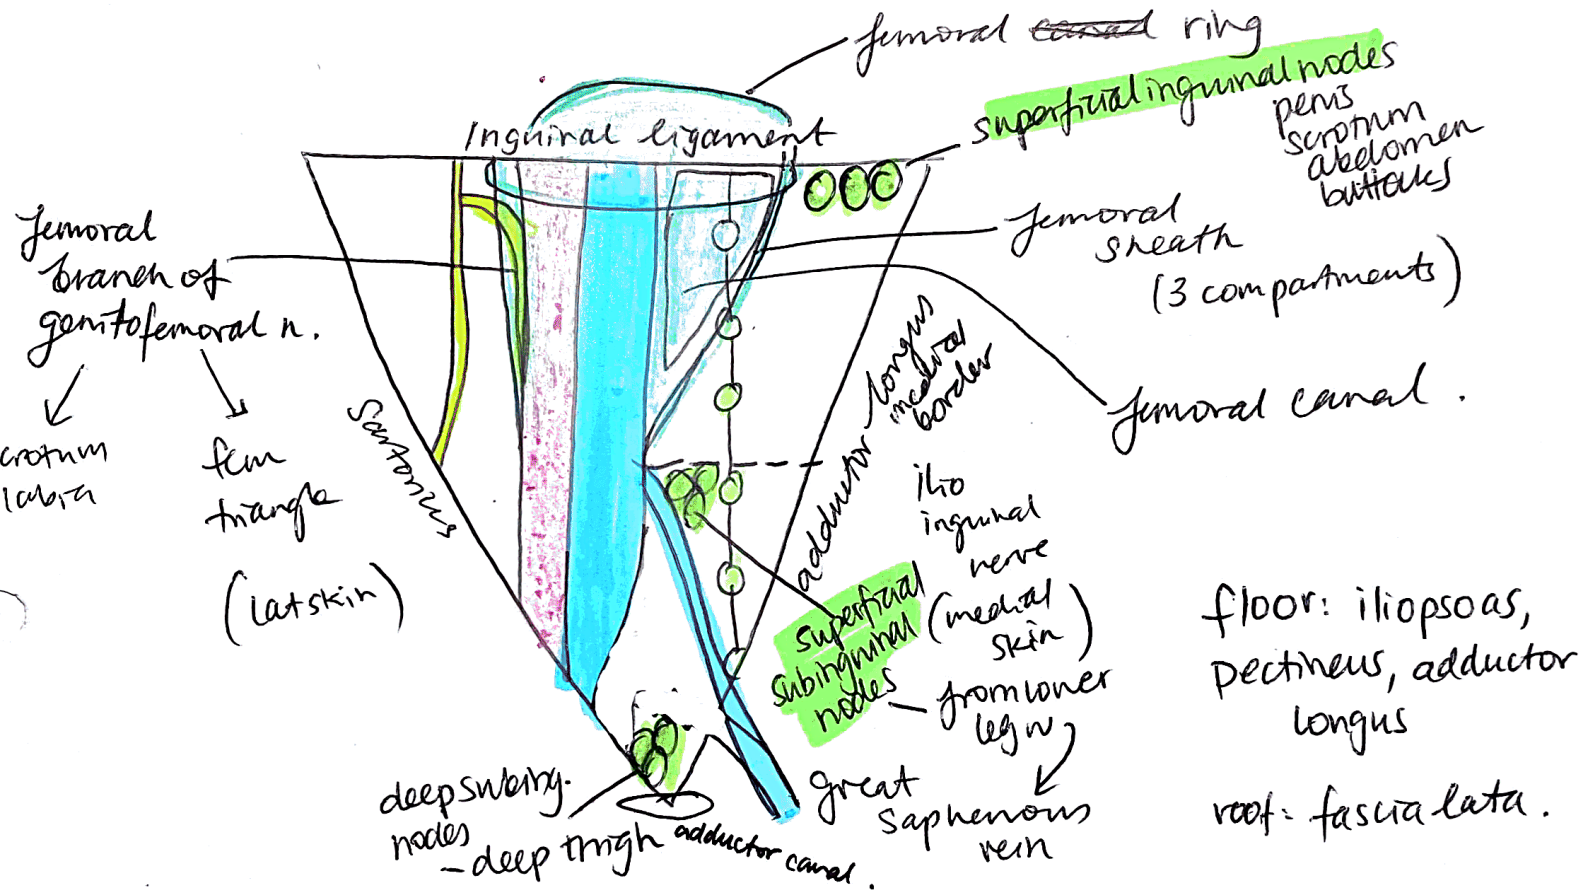 femoral ring
superficial inguinal nodes
penis
scrotum
abdomen
buttocks
Inguinal ligament
femoral
sheath
(3 compartments)
femoral
branch of
genitofemoral n.
crotum
labia
fem
triangle
(lat skin)
Sartorius
adductor longus
medial
border
femoral canal.
ilio
inguinal
nerve
(medial
skin)
superficial
subinguinal
nodes
from lower
leg w
great
saphenous
vein
deep subing.
nodes
- deep thigh
adductor canal.
floor: iliopsoas,
pectineus, adductor
longus
roof: fascia lata.